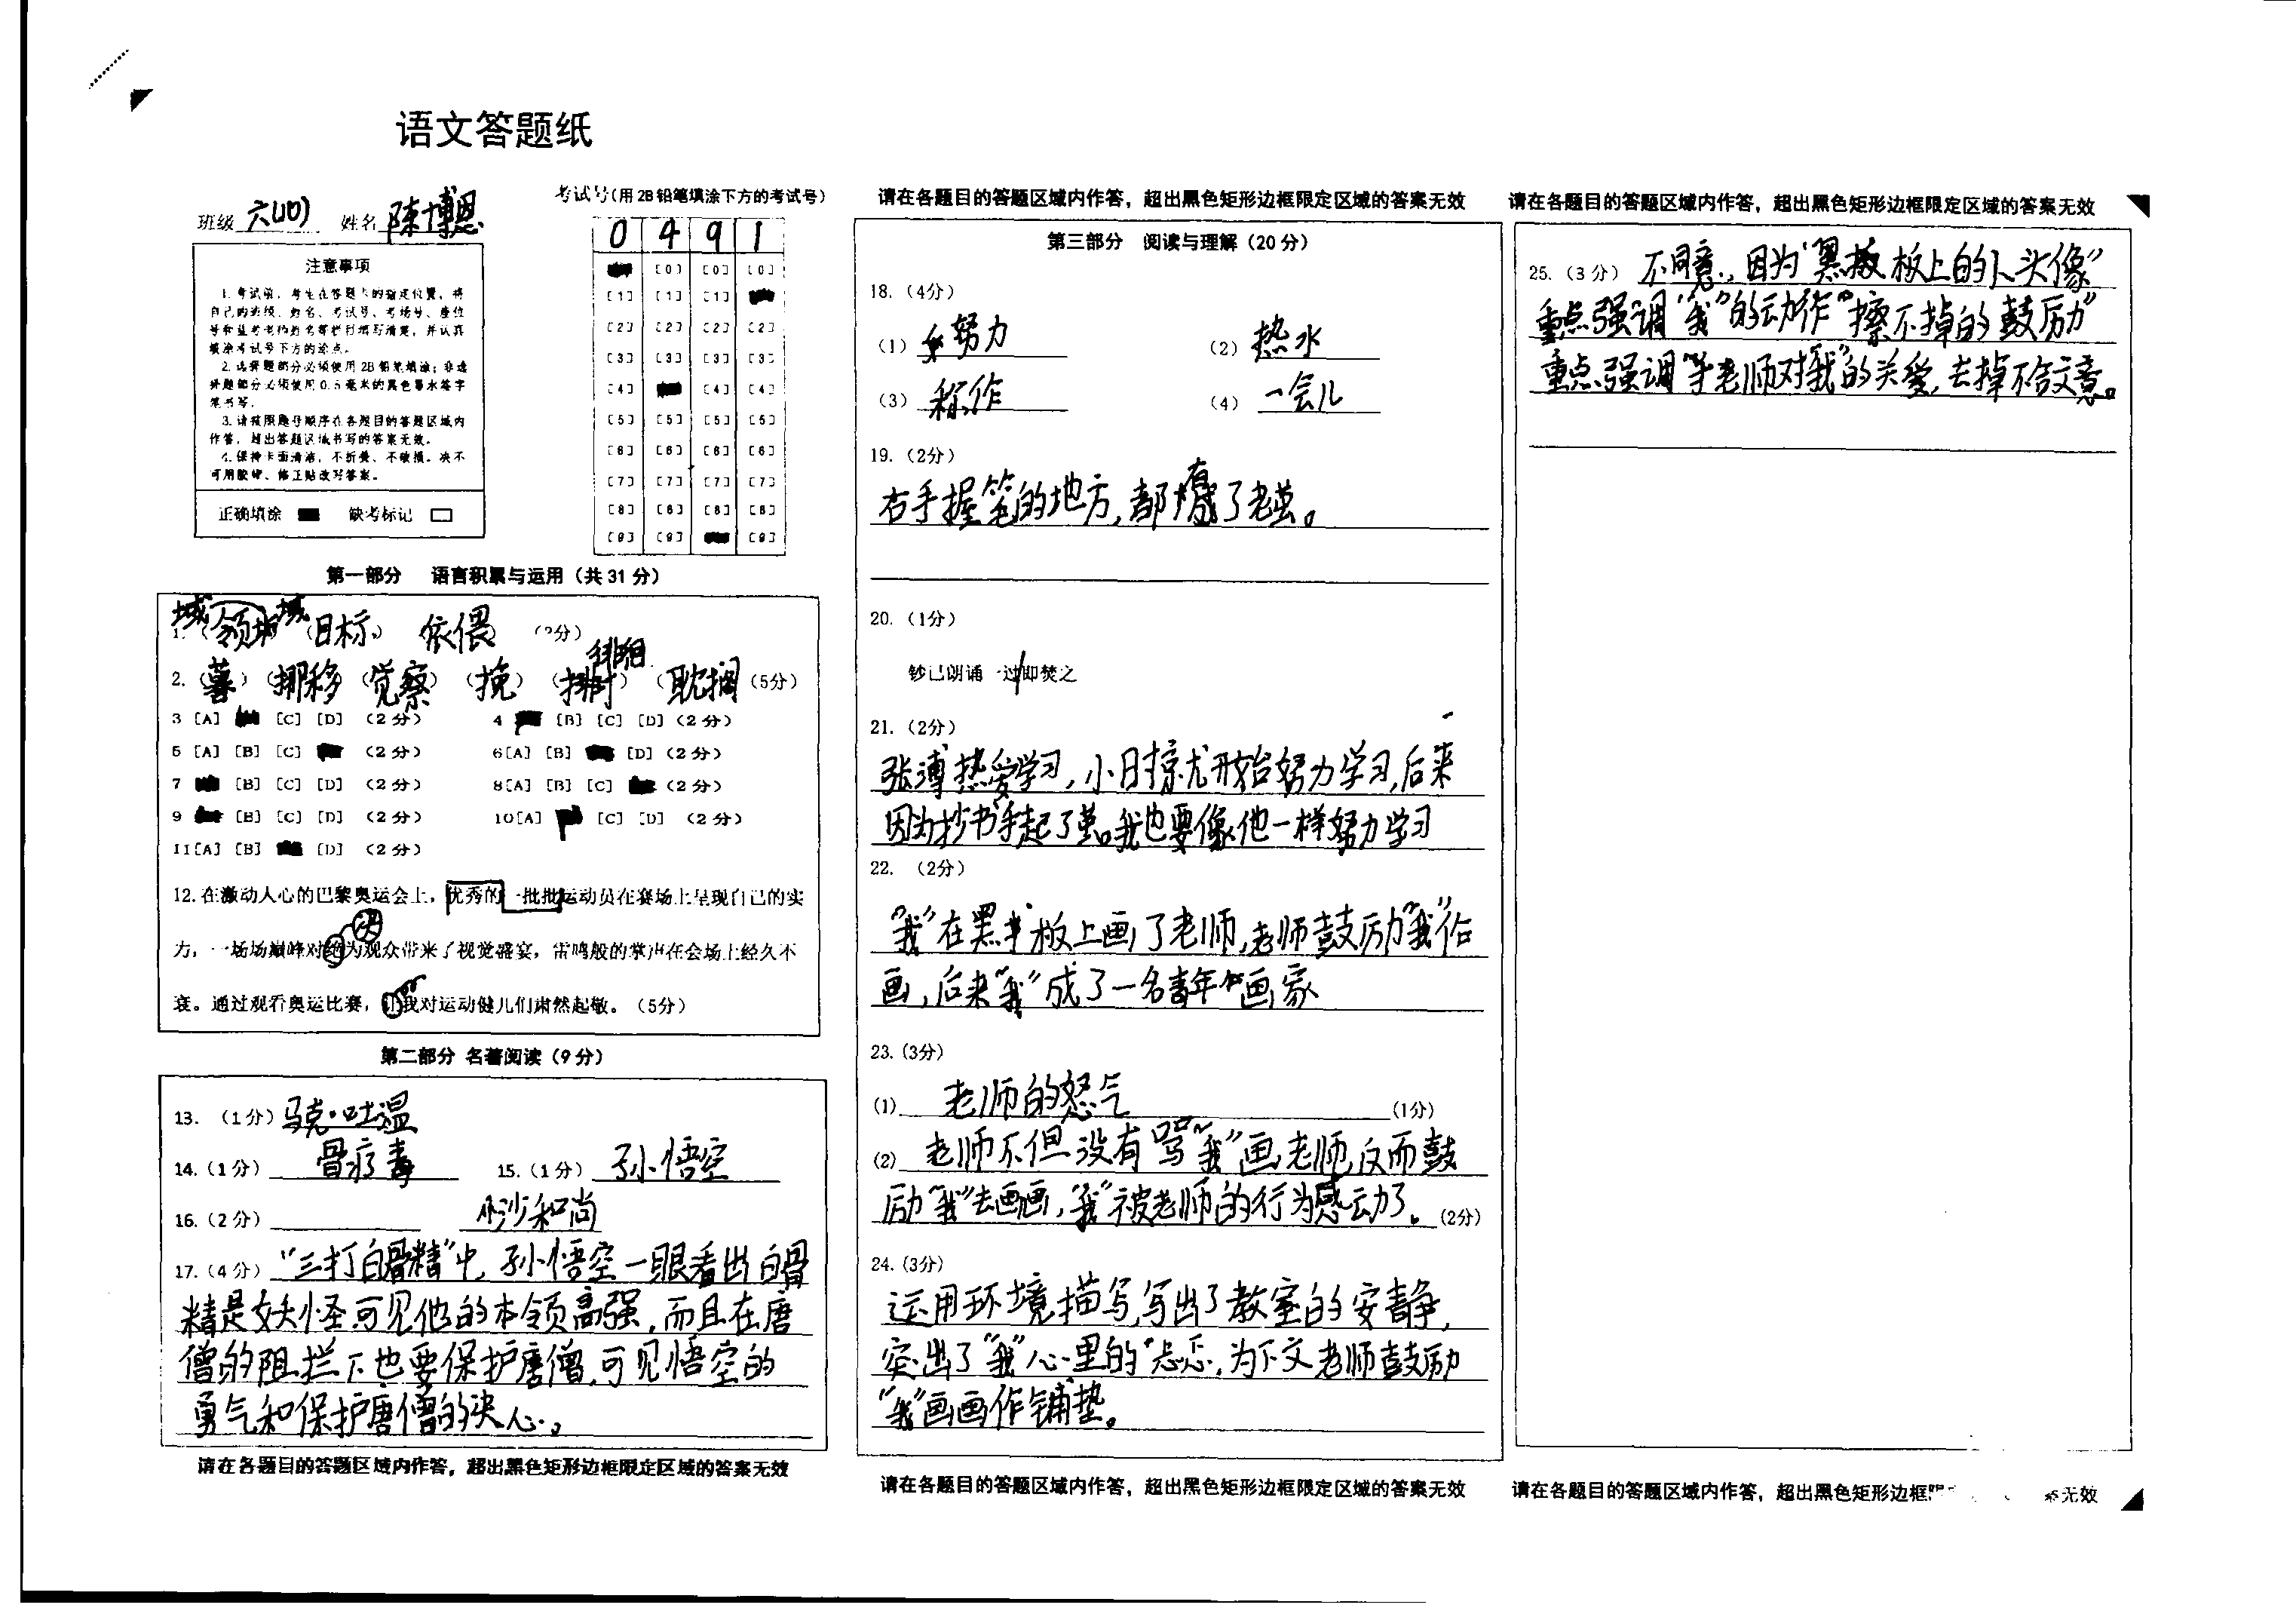 语文答题纸
班级 六(10) 姓名 陈博恩
考试号(用 2B 铅笔填涂下方的考试号)
0 4 9 1
注意事项
1. 考试前，考生在答题卡的指定位置，将
自己的班级、姓名、考试号、考场号、座位
号和监考老师姓名等栏目填写清楚，并认真
填涂考试号下方的涂点。
2. 选择题部分必须使用 2B 铅笔填涂；非选
择题部分必须使用 0.5 毫米的黑色墨水签字
笔书写。
3. 请按照题号顺序在各题目的答题区域内
作答，超出答题区域书写的答案无效。
4. 保持卡面清洁，不折叠、不破损。决不
可用胶带、修正贴改写答案。
正确填涂 缺考标记
[0] [0] [0]
[1] [1] [1]
[2] [2] [2] [2]
[3] [3] [3] [3]
[4] [4] [4]
[5] [5] [5] [5]
[6] [6] [6] [6]
[7] [7] [7] [7]
[8] [8] [8] [8]
[9] [9] [9]
第一部分 语言积累与运用（共 31 分）
1. (领域) (目标) 依偎 (2分)
2. (暮) (挪移) (觉察) (挽) (徘徊) (耽搁) (5分)
3 [A] [C] [D] (2 分) 4 [B] [C] [D] (2 分)
5 [A] [B] [C] (2 分) 6[A] [B] [D] (2 分)
7 [B] [C] [D] (2 分) 8[A] [B] [C] (2 分)
9 [B] [C] [D] (2 分) 10[A] [C] [D] (2 分)
11[A] [B] [D] (2 分)
12. 在激动人心的巴黎奥运会上，优秀的一批批运动员在赛场上呈现自己的实
决
力，一场场巅峰对绝为观众带来了视觉盛宴，雷鸣般的掌声在会场上经久不
衰。通过观看奥运比赛，让我对运动健儿们肃然起敬。（5分）
第二部分 名著阅读（9 分）
13. （1 分）马克·吐温
14.（1 分） 骨疗毒 15.（1 分） 孙悟空
16.（2 分） 沙和尚
17.（4 分） “三打白骨精”中，孙悟空一眼看出白骨
精是妖怪可见他的本领高强，而且在唐
僧的阻拦下也要保护唐僧，可见悟空的
勇气和保护唐僧的决心。
请在各题目的答题区域内作答，超出黑色矩形边框限定区域的答案无效
请在各题目的答题区域内作答，超出黑色矩形边框限定区域的答案无效
第三部分 阅读与理解（20 分）
18.（4分）
(1) 努力 (2) 热水
(3) 称作 (4) 一会儿
19.（2分）
右手握笔的地方，都有了老茧。
20.（1分）
钞已朗诵一过/即焚之
21.（2分）
张溥热爱学习，小时候就开始努力学习，后来
因为抄书手起了茧。我也要像他一样努力学习
22. （2分）
“我”在黑板上画了老师，老师鼓励“我”作
画，后来“我”成了一名青年画家
23.（3分）
(1) 老师的怒气 (1分)
(2) 老师不但没有骂“我”画老师，反而鼓
励“我”去画画，“我”被老师的行为感动了。(2分)
24.（3分）
运用环境描写，写出了教室的安静，
突出了“我”心里的忐忑，为下文老师鼓励
“我”画画作铺垫。
请在各题目的答题区域内作答，超出黑色矩形边框限定区域的答案无效
请在各题目的答题区域内作答，超出黑色矩形边框限定区域的答案无效
25.（3 分） 不同意，因为“黑板上的人头像”
重点强调“我”的动作“擦不掉的鼓励”
重点强调“于老师对我”的关爱，去掉不合文意。
请在各题目的答题区域内作答，超出黑色矩形边框 无效